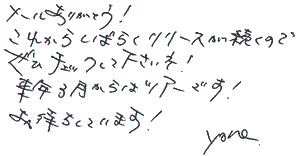 メールありがとう!
これからしばらくリリースが続くので
ぜひチェックして下さいネ!
来年3月からはツアーです!
お待ちしています!
yone